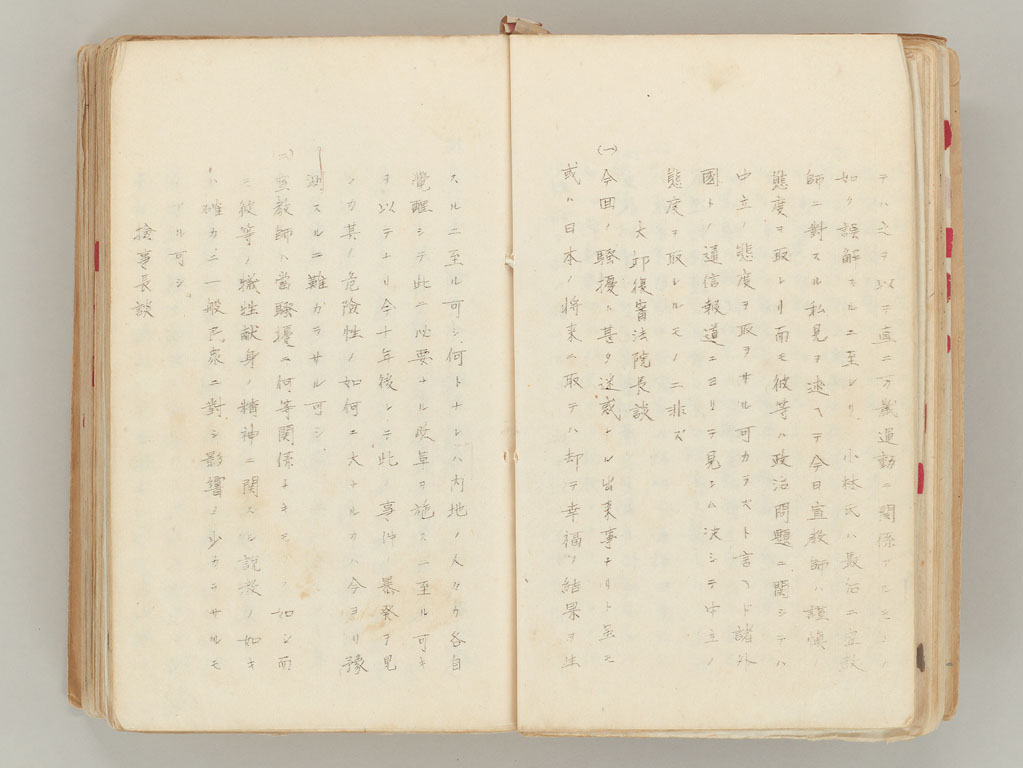 テハ之ヲ以テ直ニ 運動ニ関係アルモノノ
如ク誤解スルニ至レリ 小林氏ハ最后ニ宣教
師ニ對スル私見ヲ述ヘテ今日宣教師ハ謹慎
態度ヲ取レリ而モ彼等ハ政治問題ニ関シテハ
中立ノ態度ヲ取ラサル可カラズト言ヘド諸外
國トノ通信報道ニヨリテ見シム決シテ中立ノ
態度ヲ取レルモノニ非ズ
大邱復審法院長談
(一)今回ノ騒擾ハ甚タ迷惑ナル出来事ナリト虽モ
或ハ日本ノ将来ニ取テハ却テ幸福ノ結果ヲ生
スルニ至ル可シ何トナレハ内地ノ人々カ各自
覚醒シテ此ニ必要ナル改革ヲ施スニ至ル可キ
ヲ以テナリ今十年後レテ此ノ事件ノ暴発ヲ見
ンカ其ノ危険性ノ如何ニ大ナルカハ今ヨリ豫
測スルニ難カラサル可シ
(二)宣教師ハ當騒擾ニ何等関係ナキモノノ如シ而
シ彼等ノ犠牲献身ノ精神ニ関スル説教ノ如キ
ハ確カニ一般民衆ニ對シ影響ノ少カラサルモ
ノアル可シ。
検事長談